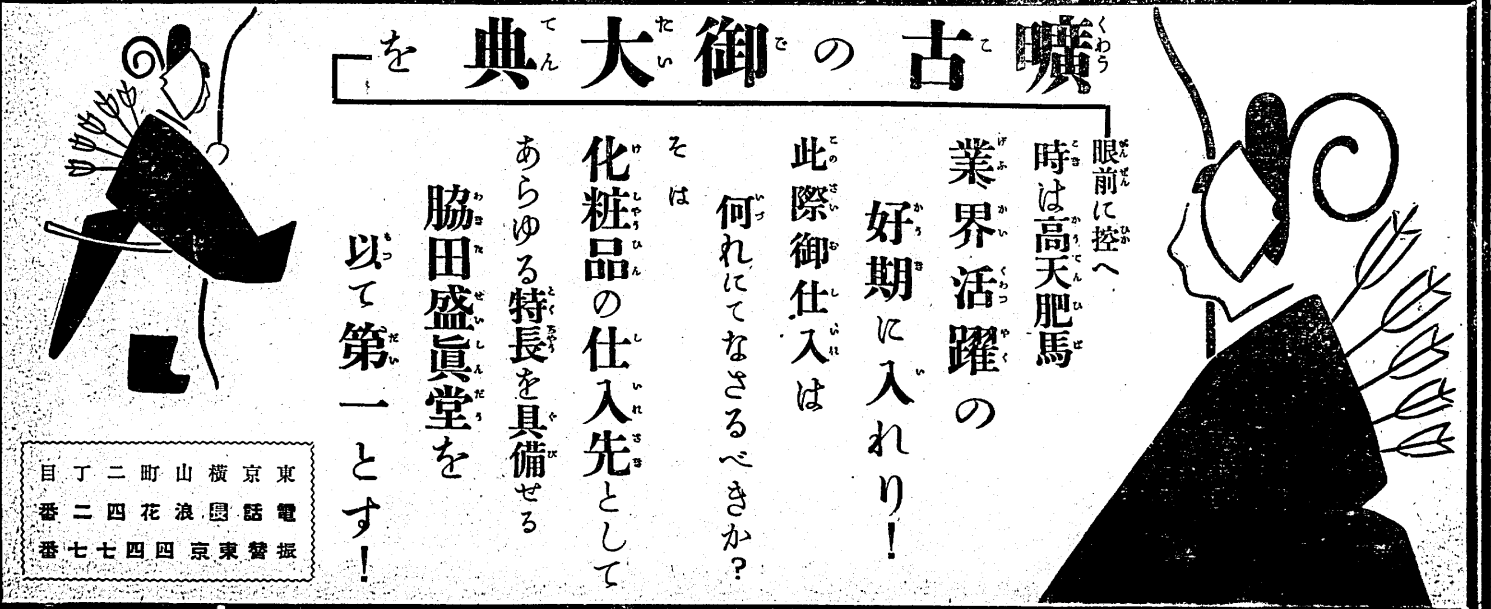 曠古の御大典を
眼前に控へ
時は高天肥馬
業界活躍の
好期に入れり!
此際御仕入は
何れにてなさるべきか?
そは
化粧品の仕入先として
あらゆる特長を具備せる
脇田盛眞堂を
以て第一とす!
東京橫山町二丁目
電話長浪花四二番
振替東京四四七七番